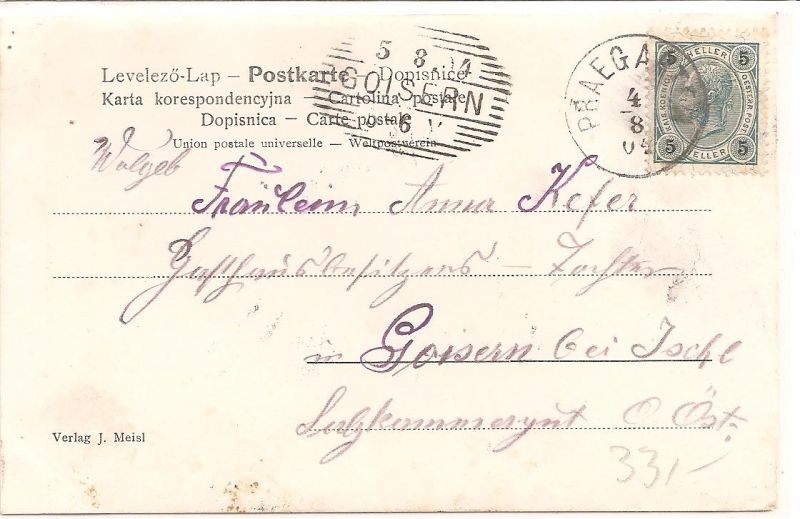 Levelező-Lap – Postkarte – Dopisnice
Karta korespondencyjna – Cartolina postale
Dopisnica – Carte postale
Union postale universelle – Weltpostverein
5 8 04
GOISERN
6
PRAEGA
4
8
04
5 HELLER 5
KAIS. KOENIGL. OESTERR. POST
5 HELLER 5
Wolgeb
Fräulein Anna Kefer
Gasthausbesitzers – Tochter
in Goisern bei Ischl
Salzkammergut O Öst.
Verlag J. Meisl
331-